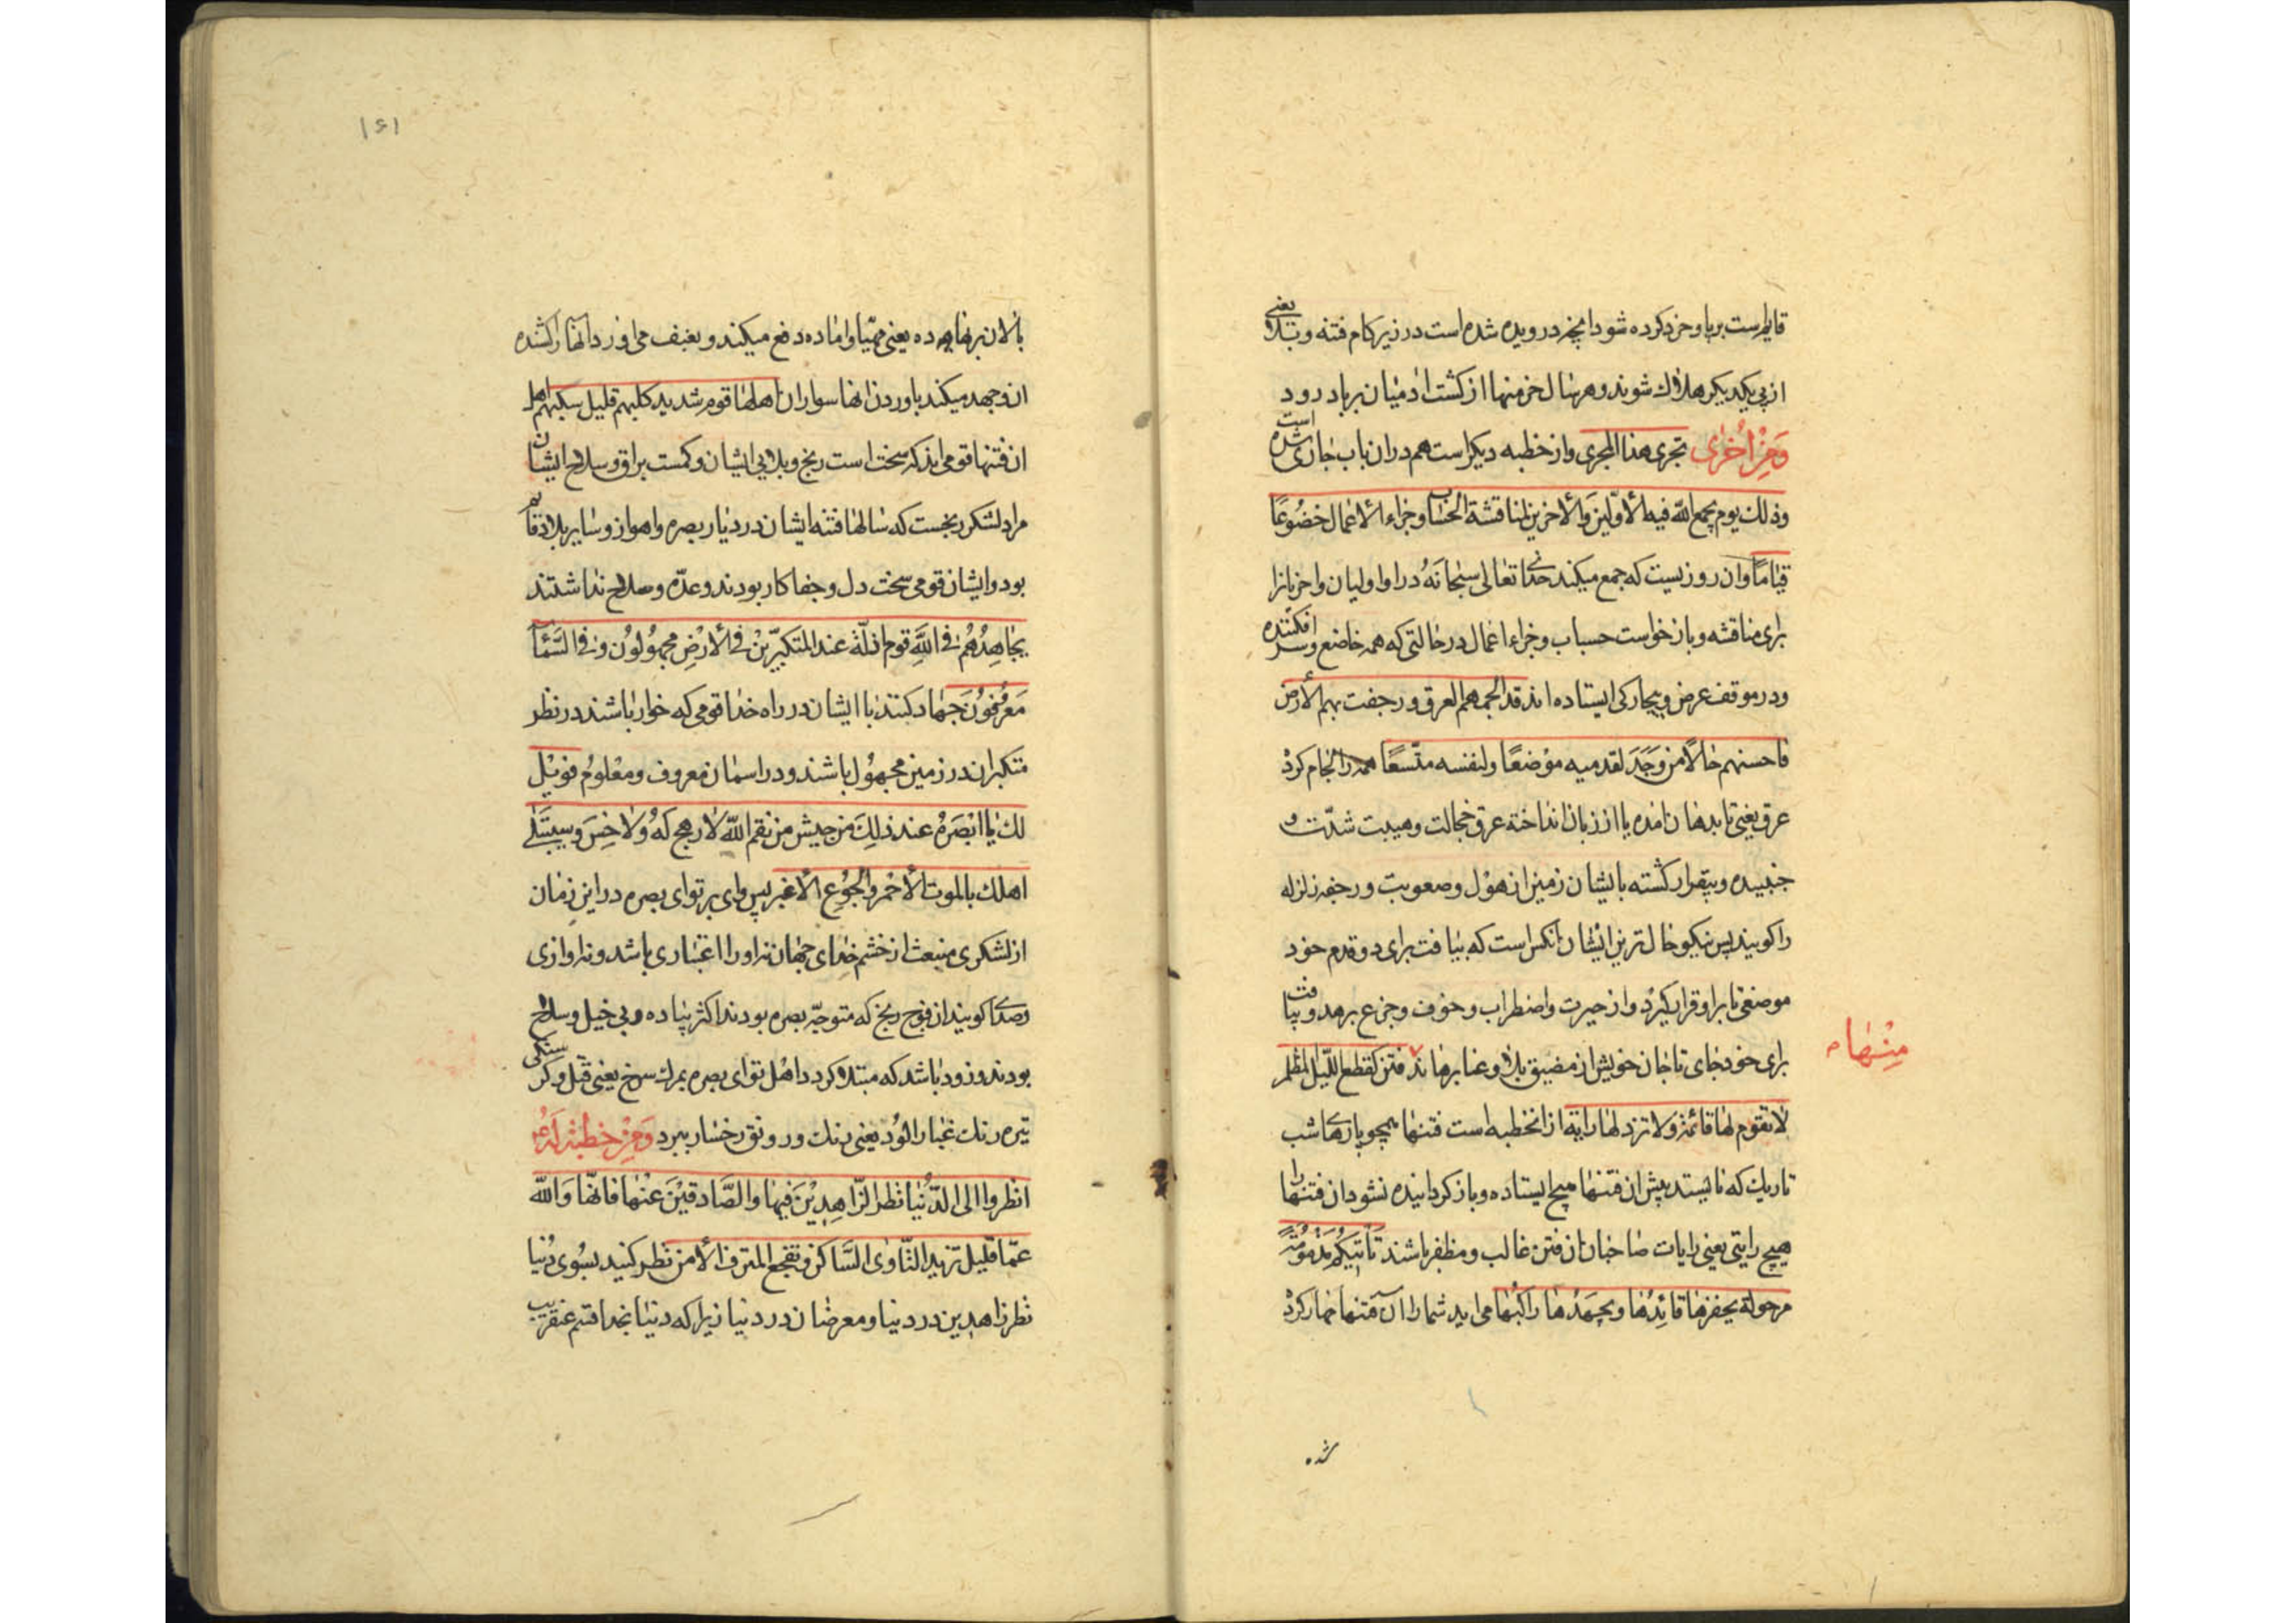 قایم است برپا و خرد کرده شود انچه درویده شده است در زیر کام فتنه و بتلا یعنی
از پی یکدیکر هلاك شوند و هر سال خرمنها از کشت ادمیان برباد رود
وَمِنْ اُخْرٰی تجری هذا المجری و از خطبه دیکر است هم در ان باب جاری شده است
وذلك یوم یجمع الله فیه الأوّلینَ والأخرین لمناقشة الحساب وجزاء الأعمال خضُوعًا
قیامًا وان روزیست که جمع میکند خدای تعالی سبحانَهُ در او اولیان واخریانرا
برای مناقشه و باز خواست حساب و جزاء اعمال در حالتی که همه خاضع و سر افکنده
ودر موقف عرض و بیچارکی ایستاده اند قد الجمهم العرق و رجفت بهم الأرض
فاحسنهم حالاً من وَجَدَ لقدمیه موْضعًا ولنفسه متّسعًا همه را لجام کرد
عرق یعنی تا بدهان امده یا از زبان انداخته عرق خجالت و هیبت شدّت و
جنبیده و بیقرار کشته با یشان زمین از هوْل و صعوبت و رجفه زلزله
را کویند پس نیکو حال ترین ایشان انکس است که بیافت برای دو قدم خود
موضعی تا بر او قرار کیرد و از حیرت و اضطراب و خوف و جزع برهد و بیافت
برای خود جای تا جان خویش از مضیق بلا و عنا برهاند فتن کقطع اللّیل المظلم
منْها
لا تقوم لها قائمة ولا تردّ لها رایة از انخطبه است فتنها همچو پارهاى شب
تاریك که نایستد پیش ان فتنها هیچ ایستاده و باز کردانیده نشود ان فتنها را
هیچ رایتی یعنی رایات صاحبان ان فتن غالب و مظفر باشند تأتیکُم مزْمُومَةً
مرحولة یحفزها قائدُها ویجهَدُها راکبُها می اید شما را آن فتنها مهار کرد
شده
۱۶۱
پالان برنهاده یعنی مهیّا و اماده دفع میکند و بعنف می اورد انها را کشنده
ان و جهد میکند باوردن انها سواران اهلها قوم شدید کلبهم قلیل سلبهم اهل
ان فتنها قومی اند که سخت است رنج و بلایی ایشان و کمست براق و سلاح ایشان
مراد لشکر زنجست که سالها فتنه ایشان در دیار بصره و اهواز و سایر بلاد قایم
بود و ایشان قومی سخت دل و جفا کار بودند و عدّه و سلاح نداشتند
یجاهِدُهُمْ فی اللَّهِ قوم اذلّة عند المتکبّرینْ فی الأرْضِ مجهُولُون وفی السَّمَآءِ
مَعرُوفُونَ جهاد کنند با ایشان در راه خدا قومی که خوار باشند در نظر
متکبران در زمین مجهوُل باشند و در اسمان معروف و معْلوم فویْل
لك یا بَصْرَةُ عند ذلِكَ من جیش من نقم اللّه لا رهج لَهُ ولا حِسَّ وسیبتلی
اهلك بالموت الأحْمر والجُوْع الأغبر پس وای بر تو ای بصره در این زمان
از لشکری منبعث از خشم خدای جهان نه او را غباری باشد و نه اوازی
کویند ان فوج زنج که متوجّه بصره بودند اکثر پیاده و بی خیل و سلاح
بودند و زود باشد که مبتلا کردد اهْل تو ای بصره بمرك سرخ یعنی قتل و کرسنکی
تیره رنك غبار الوُد یعنی رنك و رونق رخسار ببرد وَمِنْ خطبَة لَهُ ع
انظروا الی الدُّنیا نظر الزّاهِدِیْنَ فیها والصَّادقیْنَ عنْها فانّها وَاللّه
عمّا قلیل تزیل الثّاوی السَّاکن و تفجع المترف الأمن نظر کنید بسُوی دُنیا
نظر زاهدین در دنیا و معرضان در دنیا زیرا که دنیا بخدا قسم عنقریب